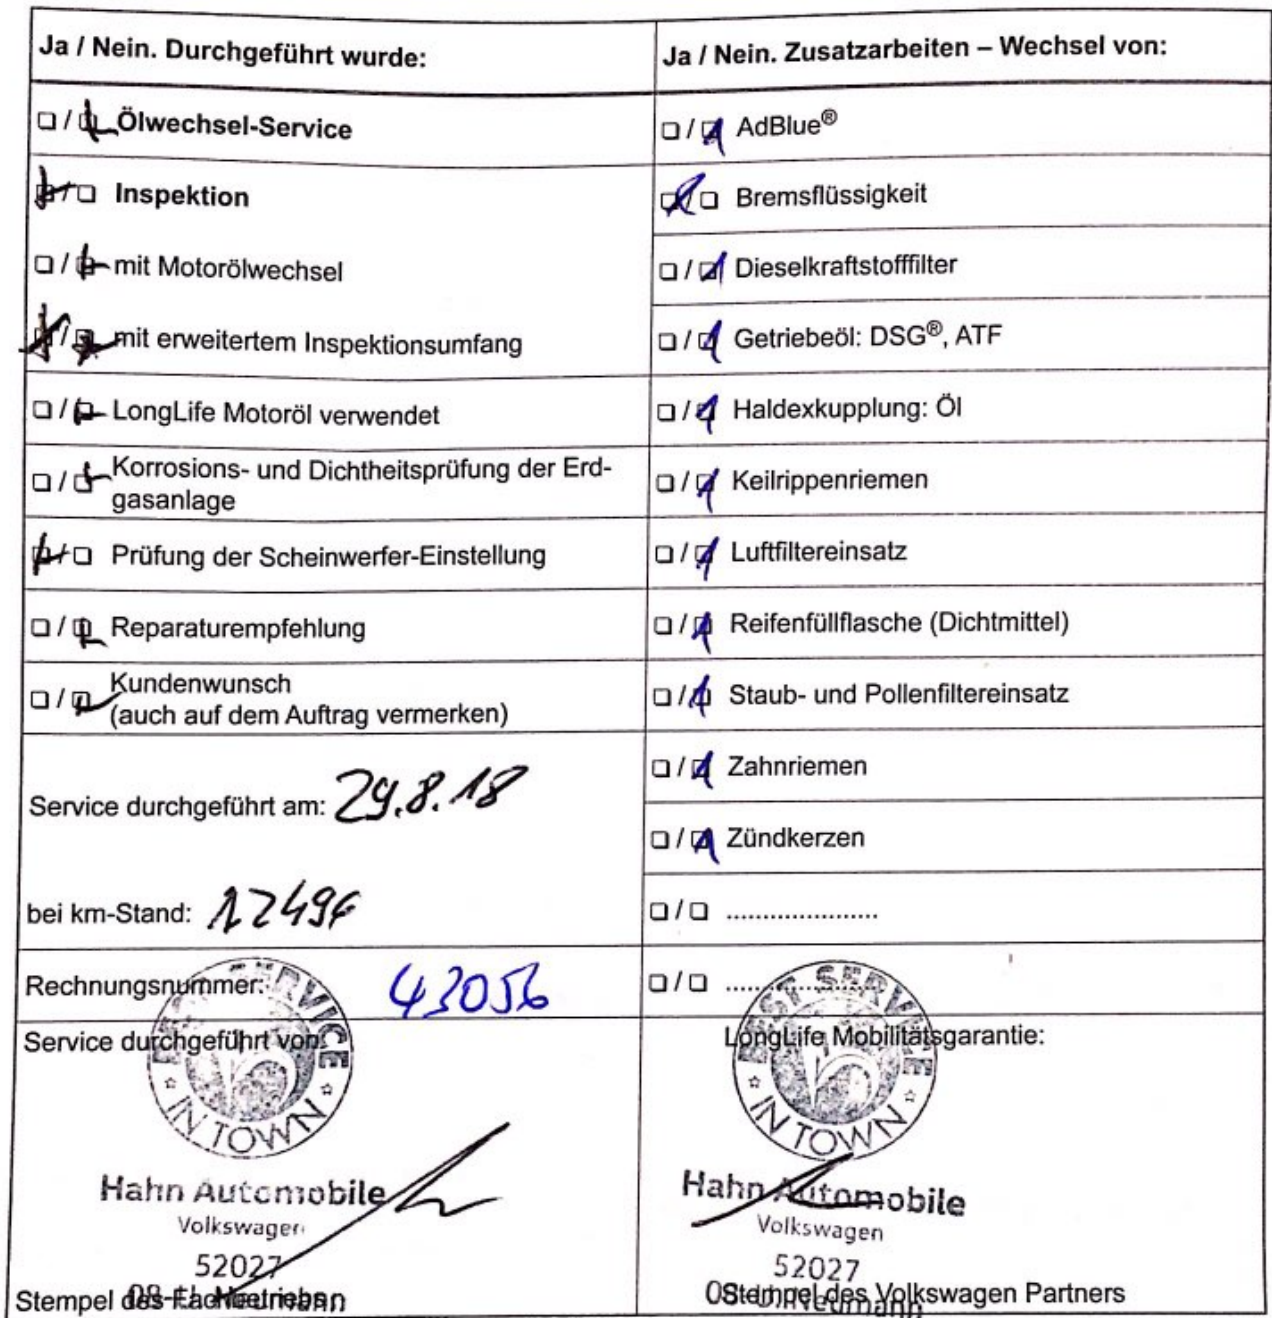 Ja / Nein. Durchgeführt wurde:
Ölwechsel-Service
Inspektion
mit Motorölwechsel
mit erweitertem Inspektionsumfang
LongLife Motoröl verwendet
Korrosions- und Dichtheitsprüfung der Erd-
gasanlage
Prüfung der Scheinwerfer-Einstellung
Reparaturempfehlung
Kundenwunsch
(auch auf dem Auftrag vermerken)
Service durchgeführt am: 29.8.18
bei km-Stand: 12496
Rechnungsnummer: 43056
Service durchgeführt von:
BEST SERVICE
IN TOWN
Hahn Automobile
Volkswagen
52027
Stempel des Fachbetriebs
Ja / Nein. Zusatzarbeiten – Wechsel von:
AdBlue®
Bremsflüssigkeit
Dieselkraftstofffilter
Getriebeöl: DSG®, ATF
Haldexkupplung: Öl
Keilrippenriemen
Luftfiltereinsatz
Reifenfüllflasche (Dichtmittel)
Staub- und Pollenfiltereinsatz
Zahnriemen
Zündkerzen
LongLife Mobilitätsgarantie:
BEST SERVICE
IN TOWN
Hahn Automobile
Volkswagen
52027
08-U. Neumann
Stempel des Volkswagen Partners